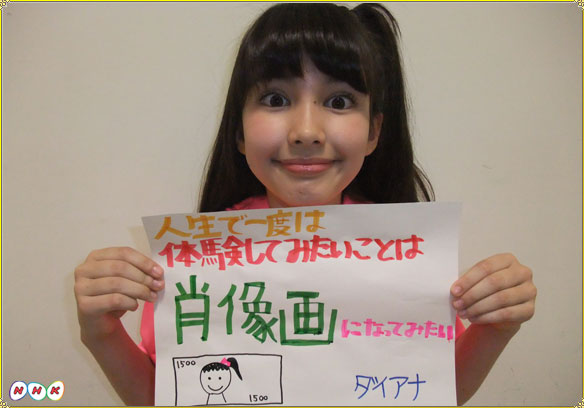 人生で一度は
体験してみたいことは
肖像画になってみたい
1500
1500
ダイアナ
NHK